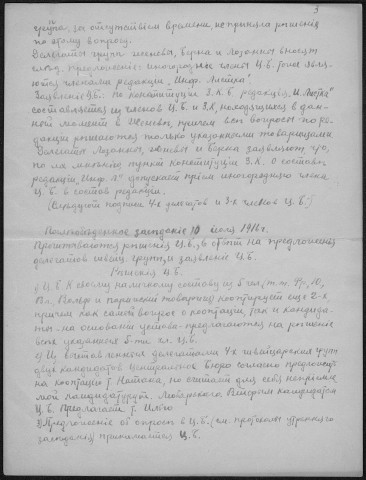 3
группа, за отсутствием времени, не приняла решения
по этому вопросу.
Делегаты групп Женевы, Берна и Лозанны вносят
след. предложение: иногородние члены Ц.Б. тоже явля-
ются членами редакции „Инф. Листка"
Заявление Ц.Б.: По конституции З.К.Б редакция „И. Листка"
составляется из членов Ц.Б. и З.К., находящихся в дан-
ной момент в Женеве, причем все вопросы по ре-
дакции решаются только указанными товарищами
Делегаты Лозанны, Женевы и Берна заявляют, что,
по их мнению пункт конституции З.К. о составе
редакции „Инф. Л" допускает прием иногороднего члена
Ц.Б. в состав редакции.
(Следуют подписи 4-х делегатов и 3-х членов Ц.Б.)
заседание 10 июля 1911 г.
Прочитываются решения Ц.Б., в ответ на предложения
делегатов швейц. групп, и заявление Ц.Б.
Решения Ц.Б.
1) Ц.Б. к своему наличному составу из 5 чл. (т.т.
и парижский товарищ) кооптирует еще 2-х,
причем как самый вопрос о кооптации, так и кандида-
ты на основании устава предлагаются на решение
всех указанных 5-ти чл. Ц.Б.
2) Из выставленных делегатами 4-х швейцарских групп
двух кандидатов Центральное Бюро согласно предложить
на кооптацию т. Натана, но считает для себя неприемле-
мой кандидатуру т. Вторым кандидатом
Ц.Б. предлагает т.
3) Предложение об опросе в Ц.Б. (см. протоколы утреннего
заседания) принимается Ц.Б.